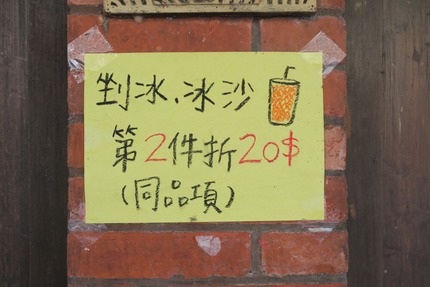 剉冰、冰沙
第2件折20$
(同品項)